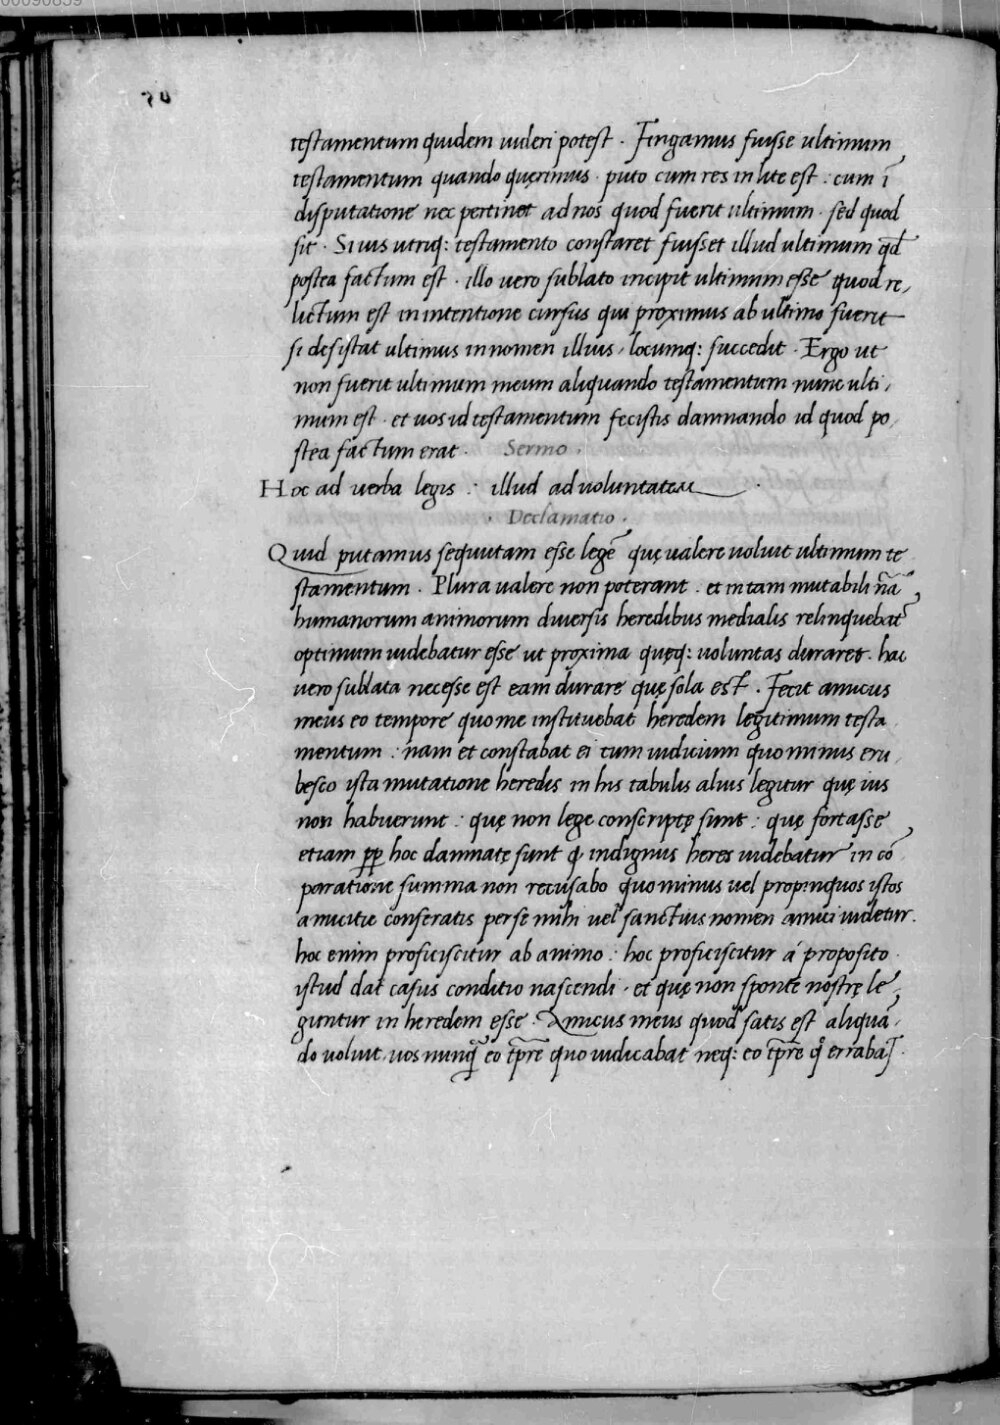 00090839
testamentum quidem uideri potest . Fingamus fuisse ultimum
testamentum quando quęrimus . puto cum res in lite est : cum ī
disputatione nec pertinet ad nos quod fuerit ultimum . sed quod
sit . Si uis utriq: testamento constaret fuisset illud ultimum qđ
postea factum est . illo vero sublato incipit ultimum esse quod re,
lictum est in intentione cursus qui proximus ab ultimo fuerit
si desistat ultimus in nomen illius , locumq: succedit . Ergo ut
non fuerit ultimum meum aliquando testamentum nunc ulti,
mum est . et uos id testamentum fecistis damnando id quod po,
stea factum erat . Sermo .
Hoc ad verba legis : illud ad voluntatem .
. Declamatio .
Quid putamus sequutam esse legē quę ualere uoluit ultimum te
stamentum . Plura ualere non poterant . et in tam mutabili nā̄,
humanorum animorum diversis heredibus medialis relinquebat̄
optimum uidebatur esse ut proxima quęq: uoluntas duraret . hac
vero sublata necesse est eam durare quę sola est . Fecit amicus
meus eo tempore quo me instituebat heredem legitimum testa,
mentum : nam et constabat ei tum iudicium quo minus eru,
besco ista mutatione heredis in his tabulis alius legitur quę ius
non habuerunt : quę non lege conscriptę sunt : quę fortasse
etiam pp̄ hoc damnatę sunt q, indignus heres uidebatur in cō,
paratione summa non recusabo quo minus uel propinquos istos
amicitię conseratis per se mihi uel sanctius nomen amici uidetur.
hoc enim proficiscitur ab animo : hoc proficiscitur á proposito .
istud dat casus conditio nascendi . et quę non sponte nostrę le,
guntur in heredem esse . Amicus meus quod satis est aliquā,
do voluit . uos nunq̄ eo tp̄re quo iudicabat neq: eo tp̄re q° errabat .